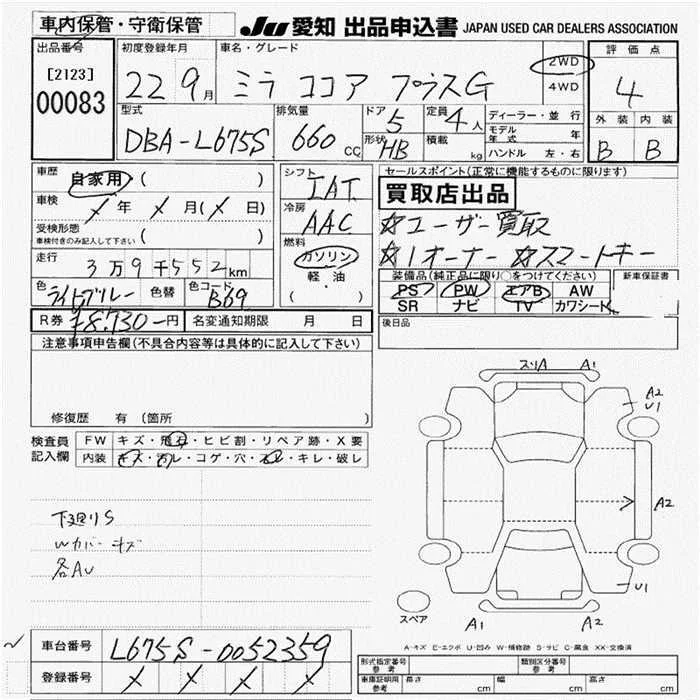 車内保管・守衛保管
JU 愛知 出品申込書 JAPAN USED CAR DEALERS ASSOCIATION
出品番号
[2123]
00083
初度登録年月
22 9月
車名・グレード
ミラ ココア プラスG
2WD
4WD
評価点
4
外装 内装
B B
型式
DBA-L675S
排気量
660 CC
ドア
5
形状
HB
定員
4人
積載
kg
ディーラー・並行
モデル年式 年
ハンドル 左・右
車歴
自家用 ( )
車検
年 月( 日)
受検形態
車検付きのみ記入して下さい ( )
走行
3万9千552km
色
ライトブルー
色替
色コード
B69
シフト
IAT
冷房
AAC
燃料
ガソリン
軽・油
( )
セールスポイント(正常に機能するものに限ります)
買取店出品
☆ユーザー買取
☆1オーナー ☆スマートキー
装備品(純正品に限り○をつけてください)
PS PW エアB AW
SR ナビ TV カワシート
新車保証書
後日品
R券 ¥8,730-円 名変通知期限 月 日
注意事項申告欄(不具合内容等は具体的に記入して下さい)
修復歴 有 (箇所 )
検査員
記入欄
FW キズ・飛石・ヒビ割・リペア跡・X要
内装 キズ・汚レ・コゲ・穴・スレ・キレ・破レ
下廻りS
Wカバーキズ
各AU
スリA A1
A2
U1
A2
U1
スペア
A1 A2
A-キズ E-エクボ U-凹み W-補修跡 S-サビ C-腐食 XX-交換済
車台番号 L675S-0052359
登録番号
形式指定番号
参考
類別区分番号
参考
車庫証明用
参考
長さ cm 幅 cm 高さ cm